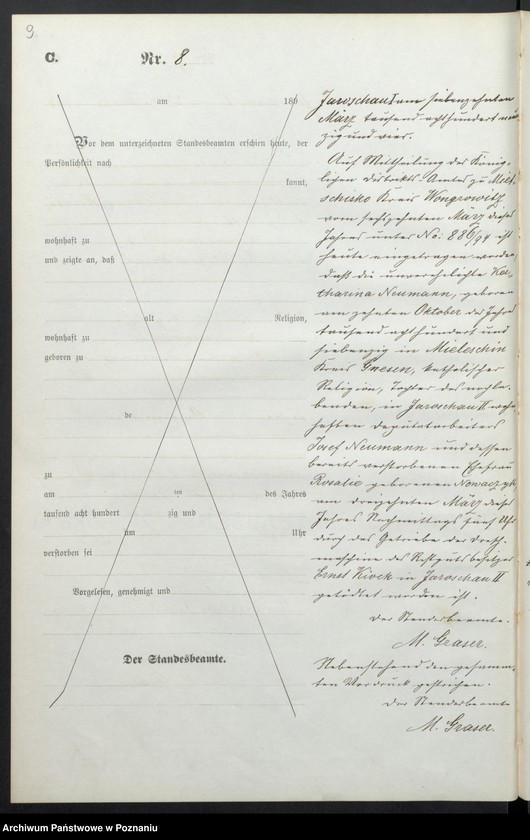 9
C.
Nr. 8.
am 186
Vor dem unterzeichneten Standesbeamten erschien heute, der
Persönlichkeit nach
kannt,
wohnhaft zu
und zeigte an, daß
alt Religion,
wohnhaft zu
geboren zu
de
zu
am ten des Jahres
tausend acht hundert zig und
um Uhr
verstorben sei
Vorgelesen, genehmigt und
Der Standesbeamte.
Jaroschau I am siebenzehnten
März tausend achthundert neun
zig und vier.
Auf Mittheilung des König-
lichen Distrikts-Amtes zu Miet-
schisko Kreis Wongrowitz
vom sechszehnten März dieses
Jahres unter No. 886/94 ist
heute eingetragen worden,
daß die unverehelichte Ka-
tharina Neumann, geboren
am zehnten Oktober des Jahres
tausend achthundert und
siebenzig in Mieleschin
Kreis Gnesen, katholischer
Religion, Tochter des noch le-
benden, in Jaroschau II wohn-
haften Deputatarbeiters
Josef Neumann und dessen
bereits verstorbenen Ehefrau
Rosalie geborenen Nowaczyk
am dreizehnten März dieses
Jahres Nachmittags fünf Uhr
durch das Getriebe der Dresch-
maschine des Restgutsbesitzers
Ernst Kiock in Jaroschau II
getödtet worden ist.
Der Standesbeamte.
M. Graser.
Nebenstehend den gesamm-
ten Vordruck gestrichen.
Der Standesbeamte
M. Graser.
Archiwum Państwowe w Poznaniu